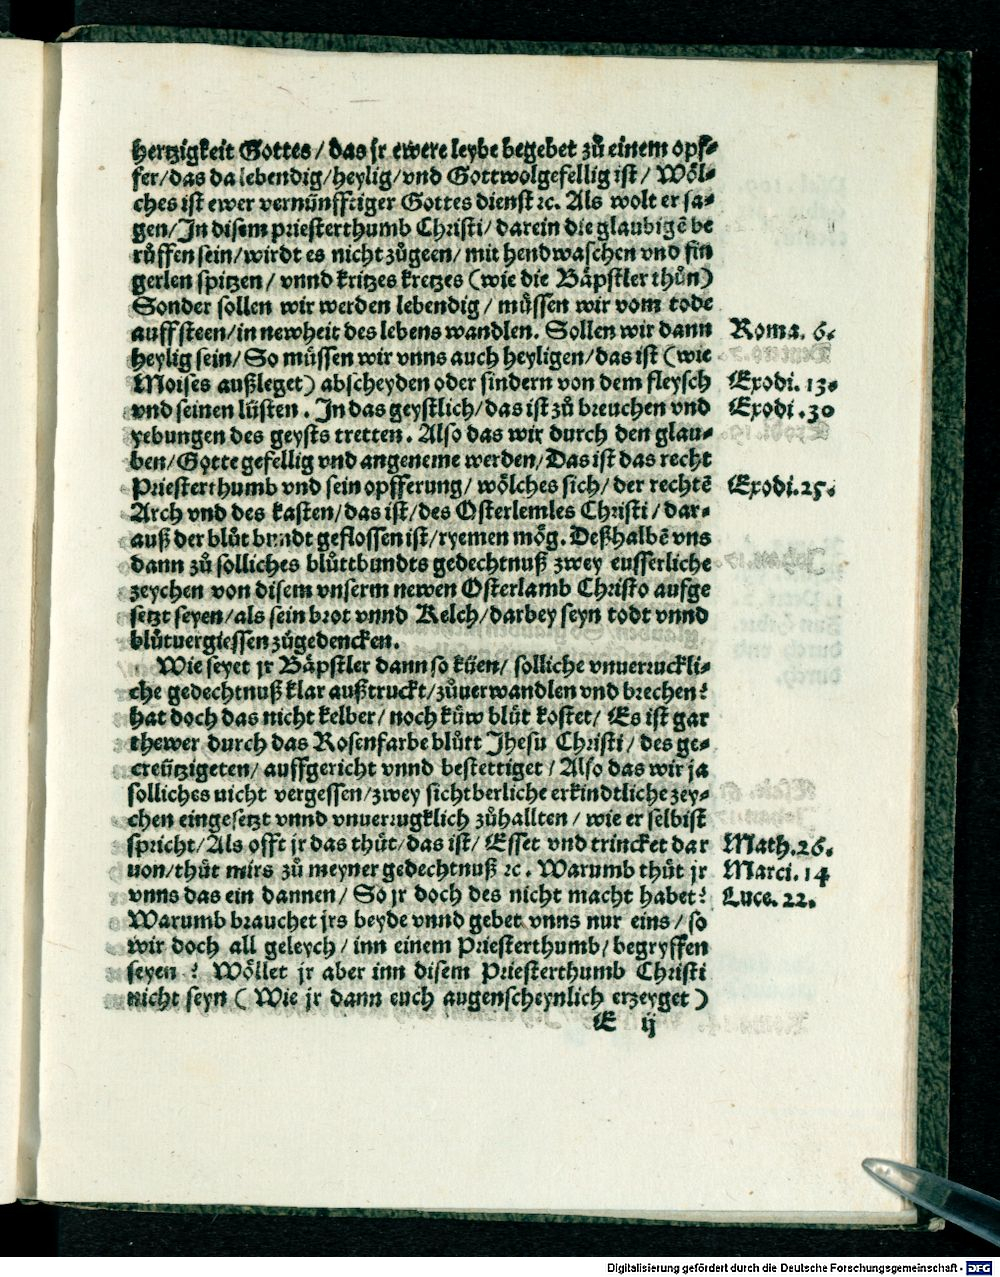 hertzigkeit Gottes / das jr ewere leybe begebet zů einem opf-
fer/das da lebendig/heylig/vnd Gottwolgefellig ist / Wöl-
ches ist ewer vernünfftiger Gottes dienst ꝛc. Als wolt er sa-
gen/In disem priesterthumb Christi/ darein die glaubigē be
růffen sein/wirdt es nicht zůgeen/ mit hendwaschen vnd fin
gerlen spitzen / vnnd kritzes kretzes (wie die Bäpstler thůn)
Sonder sollen wir werden lebendig / müssen wir vom tode
auffsteen/in newheit des lebens wandlen. Sollen wir dann
Roma. 6.
heylig sein/ So müssen wir vnns auch heyligen/das ist (wie
Moises außleget) abscheyden oder sindern von dem fleysch
Exodi. 13.
vnd seinen lüsten . In das geystlich/das ist zů breuchen vnd
Exodi .30
yebungen des geysts tretten. Also das wir durch den glau-
ben/Gotte gefellig vnd angeneme werden/Das ist das recht
Priesterthumb vnd sein opfferung/ wölches sich/ der rechtē
Exodi.25.
Arch vnd des kasten/das ist/des Osterlemles Christi / dar-
auß der blůt bundt geflossen ist/ryemen mög. Deßhalbē vns
dann zů solliches blůttbundts gedechtnuß zwey eusserliche
zeychen von disem vnserm newen Osterlamb Christo aufge
setzt seyen/als sein brot vnnd Kelch/darbey seyn todt vnnd
blůtuergiessen zůgedencken.
Wie seyet jr Bäpstler dann so küen/ solliche vnuerruckli-
che gedechtnuß klar außtruckt/zůuerwandlen vnd brechen?
hat doch das nicht kelber/ noch küw blůt kostet/ Es ist gar
thewer durch das Rosenfarbe blůtt Jhesu Christi/ des ge-
creützigeten/ auffgericht vnnd bestettiget / Also das wir ja
solliches nicht vergessen/zwey sichtberliche erkindtliche zey-
chen eingesetzt vnnd vnuerrugklich zůhallten / wie er selbist
spricht/Als offt jr das thůt/das ist/ Esset vnd trincket dar
Math.26.
uon/thůt mirs zů meyner gedechtnuß ꝛc. Warumb thůt jr
Marci. 14
vnns das ein dannen/ So jr doch des nicht macht habet?
Luce. 22.
Warumb brauchet jrs beyde vnnd gebet vnns nur eins/ so
wir doch all geleych / inn einem Priesterthumb/ begryffen
seyen ? Wöllet jr aber inn disem Priesterthumb Christi
nicht seyn ( Wie jr dann euch augenscheynlich erzeyget )
E ij
Digitalisierung gefördert durch die Deutsche Forschungsgemeinschaft - DFG